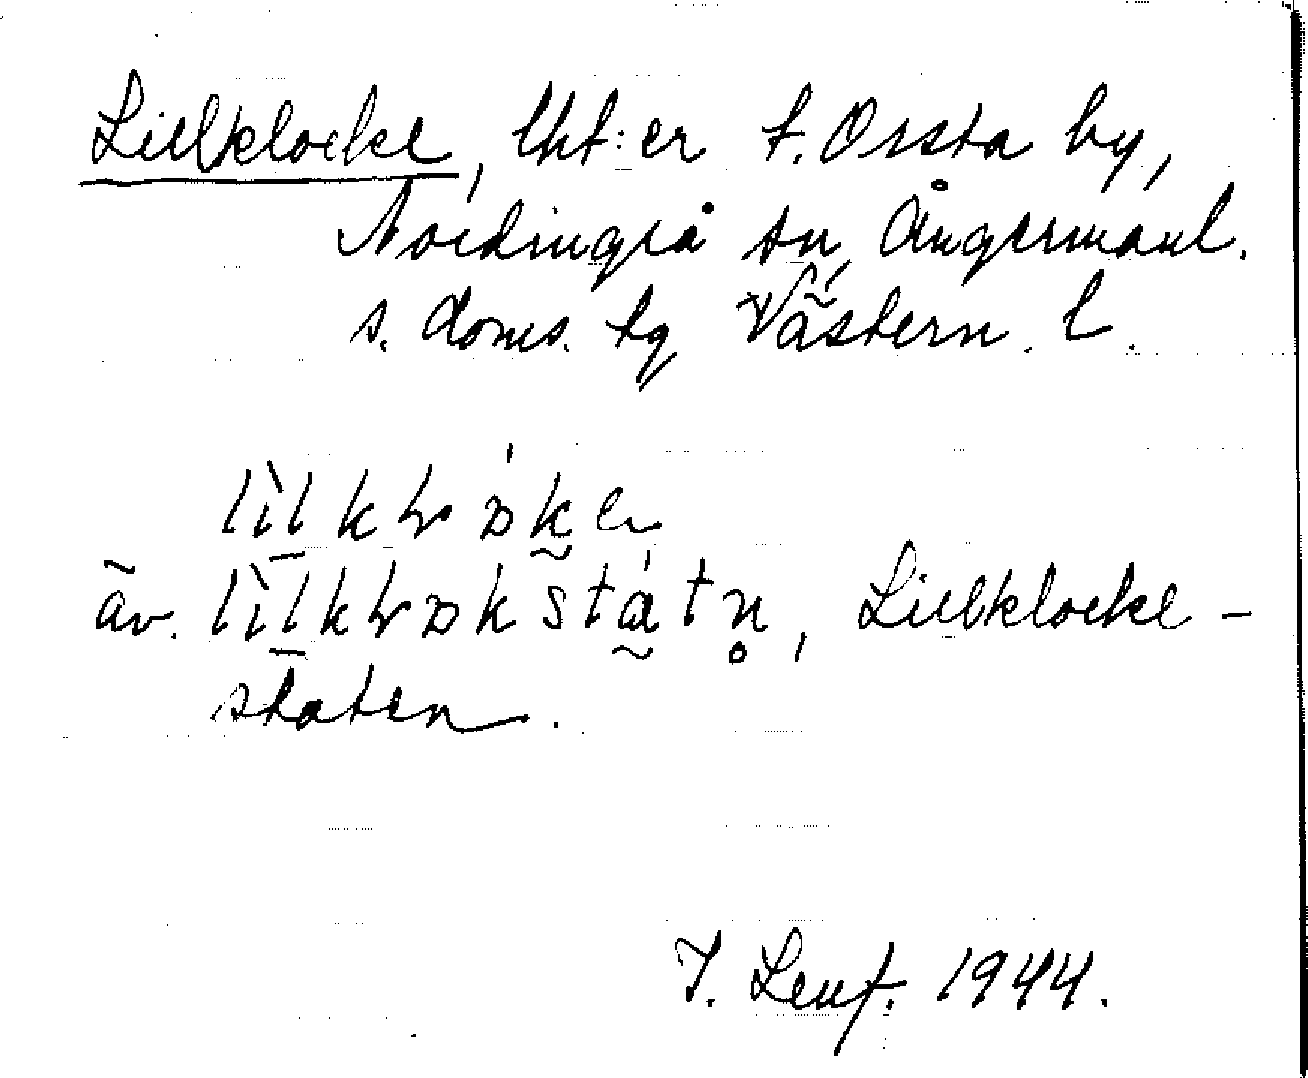 Lillklocke, lht:er t. Orsta by,
Nordingrå sn, Ångermanl.
s. doms. tg Västern. l.
lìlkɫɒ́ke
äv. lìlkɫɒkstátn̥, Lillklocke-
staten.
J. Lenf. 1944.